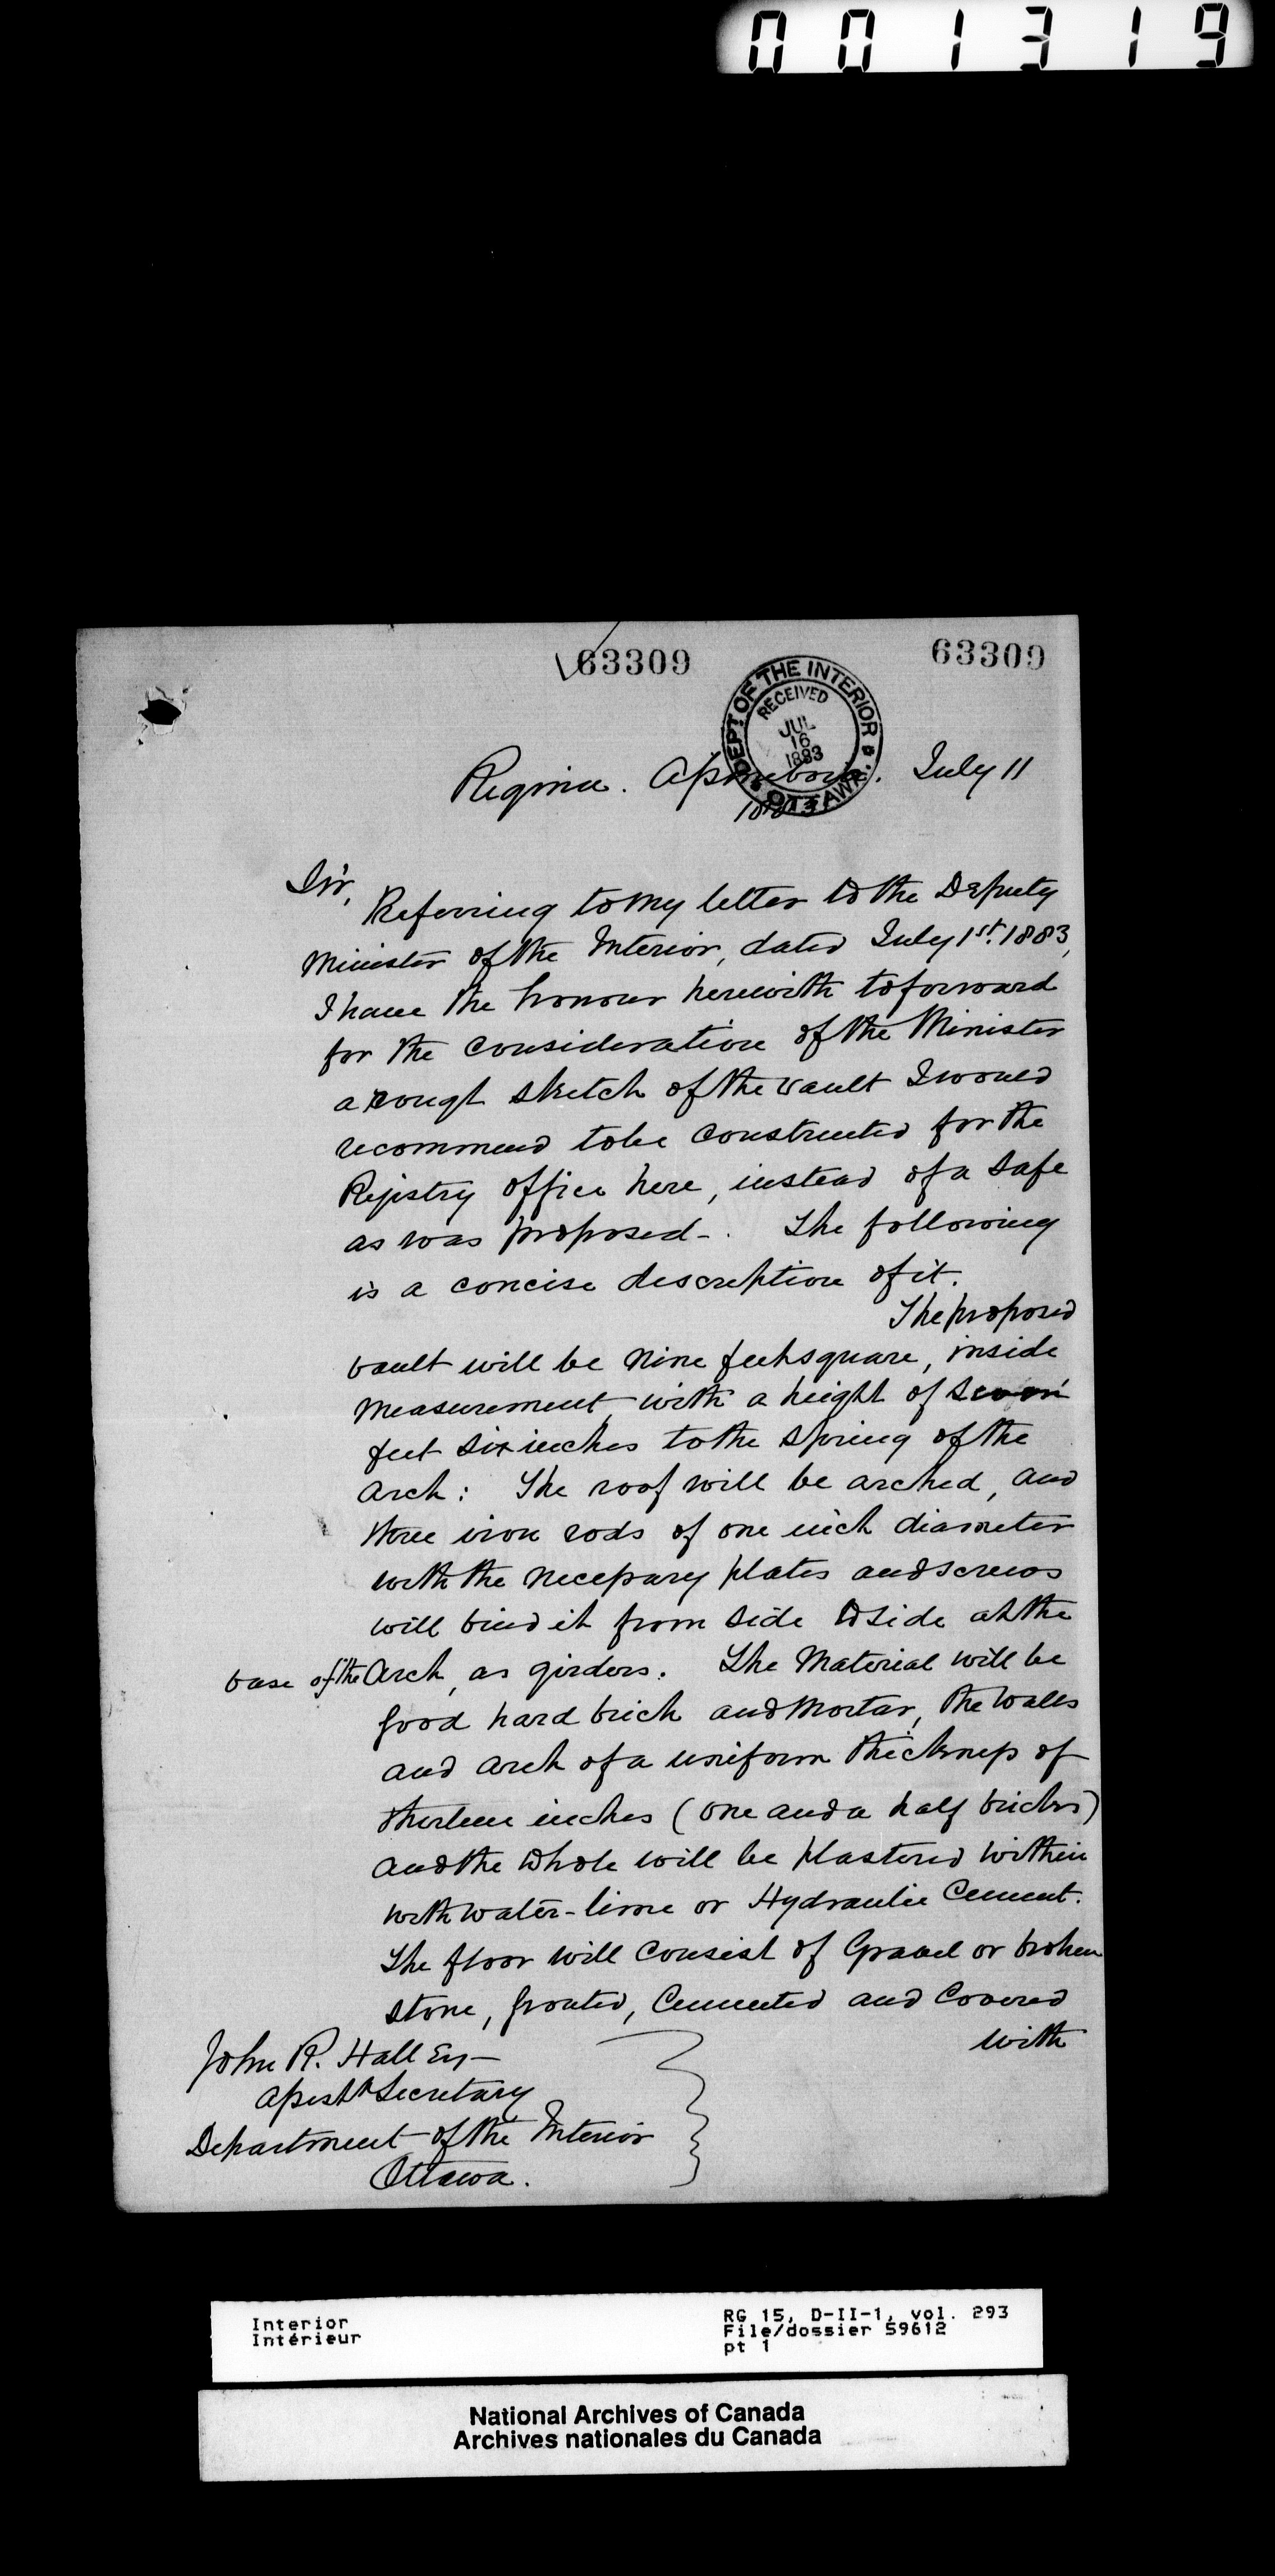 001319
63309 63309
DEPT. OF THE INTERIOR
RECEIVED
JUL
16
1883
OTTAWA
Regina. Assiniboia. July 11
1883
Sir,
Referring to my letter to the Deputy
Minister of the Interior, dated July 1st. 1883,
I have the honour herewith to forward
for the consideration of the Minister
a rough sketch of the vault I would
recommend to be constructed for the
Registry office here, instead of a safe
as was proposed -. The following
is a concise description of it.
The proposed
vault will be nine feet square, inside
measurement, with a height of seven
feet six inches to the spring of the
arch: The roof will be arched, and
three iron rods of one inch diameter
with the necessary plates and screws
will bind it from side to side at the
base of the arch, as girders. The Material will be
good hard brick and Mortar, the walls
and arch of a uniform thickness of
thirteen inches (one and a half bricks)
and the whole will be plastered within
with water-lime or Hydraulic Cement.
The floor will consist of Gravel or broken
stone, grouted, Cemented and Covered
with
John R. Hall Esq
Assistt Secretary
Department of the Interior
Ottawa.
Interior
Intérieur
RG 15, D-II-1, vol. 293
File/dossier 59612
pt 1
National Archives of Canada
Archives nationales du Canada